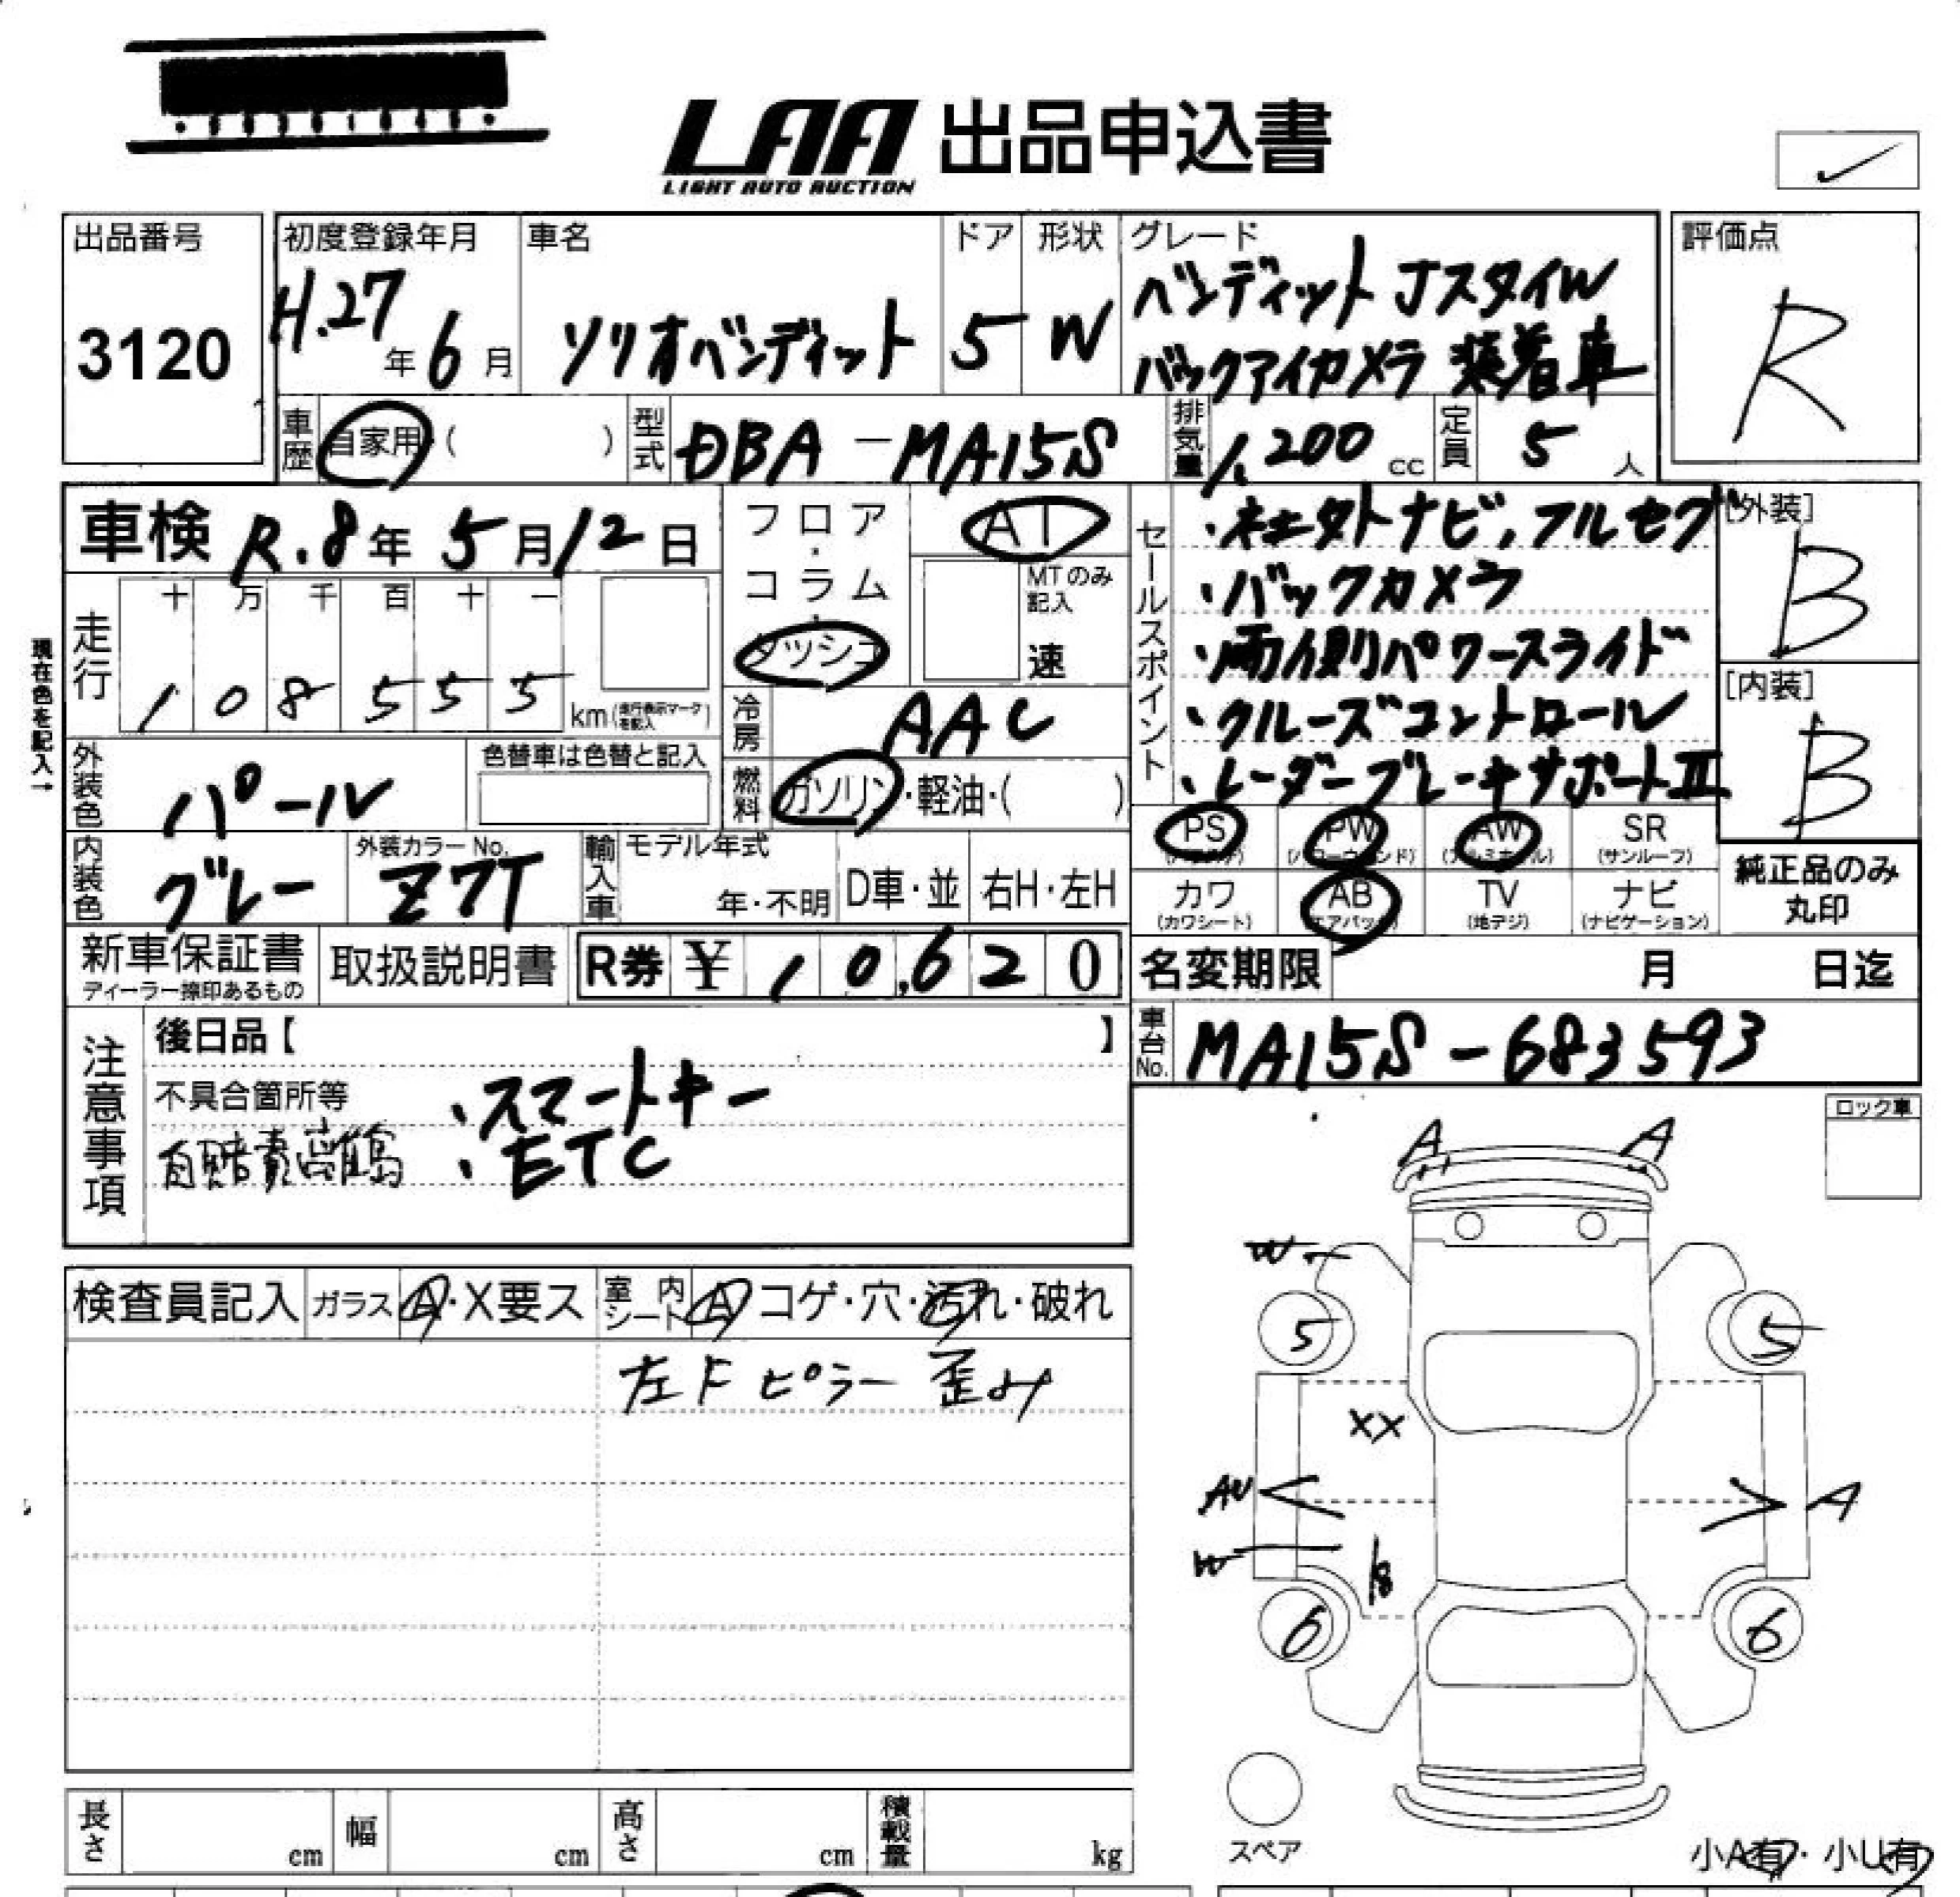 LAA 出品申込書
LIGHT AUTO AUCTION
出品番号
3120
初度登録年月
H.27年6月
車名
ソリオバンディット
ドア
5
形状
W
グレード
バンディット Jスタイル
バックアイカメラ 装着車
評価点
R
車歴 自家用・( )
型式 DBA-MA15S
排気量 1,200 cc
定員 5 人
車検 R.8年5月12日
フロア・コラム・ダッシュ
AT
MTのみ記入
速
走行
十 万 千 百 十 一
1 0 8 5 5 5 km(走行表示マークを記入)
現在色を記入→
外装色 パール
色替車は色替と記入
内装色 グレー
外装カラーNo.
Z7T
冷房 AAC
燃料 ガソリン・軽油・( )
輸入車
モデル年式
年・不明
D車・並
右H・左H
セールスポイント
・ナビ,フルセグ
・バックカメラ
・両側パワースライド
・クルーズコントロール
・レーダーブレーキサポートⅡ
[外装]
B
[内装]
B
PS PW AW SR
(パワステ) (パワーウィンド) (アルミホイル) (サンルーフ)
カワ AB TV ナビ
(カワシート) (エアバック) (地デジ) (ナビゲーション)
純正品のみ
丸印
新車保証書
ディーラー捺印あるもの
取扱説明書
R券 ¥ 10,620
名変期限 月 日迄
車台No. MA15S-683593
注意事項
後日品【 】
不具合箇所等
・スマートキー
・ETC
ロック車
検査員記入
ガラス A・X要ス
室内シート A コゲ・穴・汚れ・破れ
左Fピラー歪み
A A
W
5 5
XX
AU A
W
6 6
スペア
小A有・小U有
長さ cm
幅 cm
高さ cm
積載量 kg